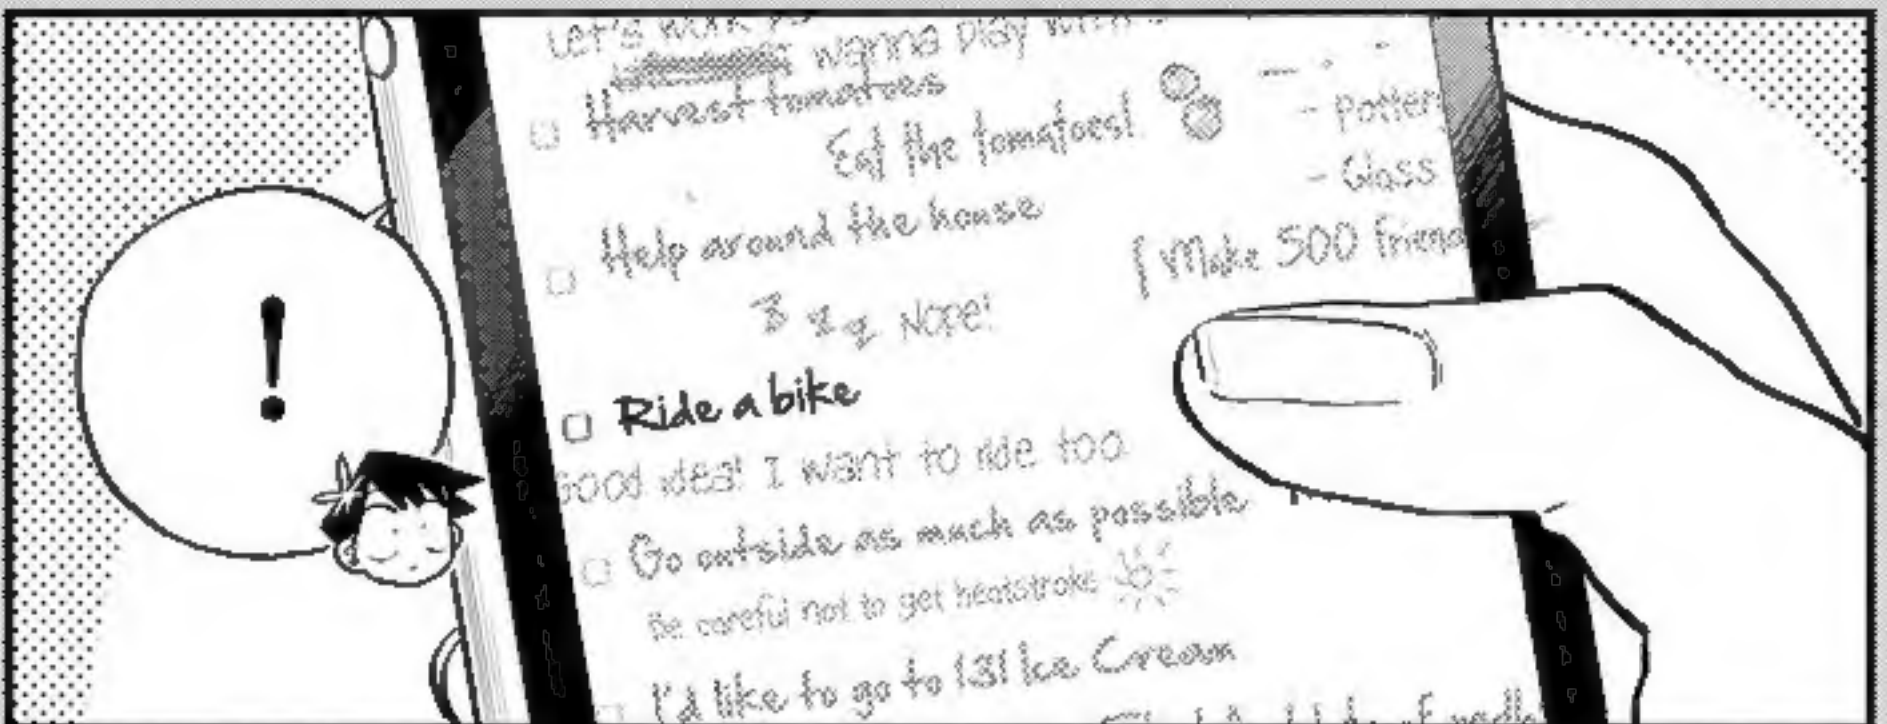 Let's work
wanna play with
Harvest tomatoes
Eat the tomatoes!
- Pottery
- Glass
Help around the house
Make 500 friend
Nope!
!
Ride a bike
Good idea! I want to ride too.
Go outside as much as possible
Be careful not to get heatstroke
I'd like to go to 131 Ice Cream